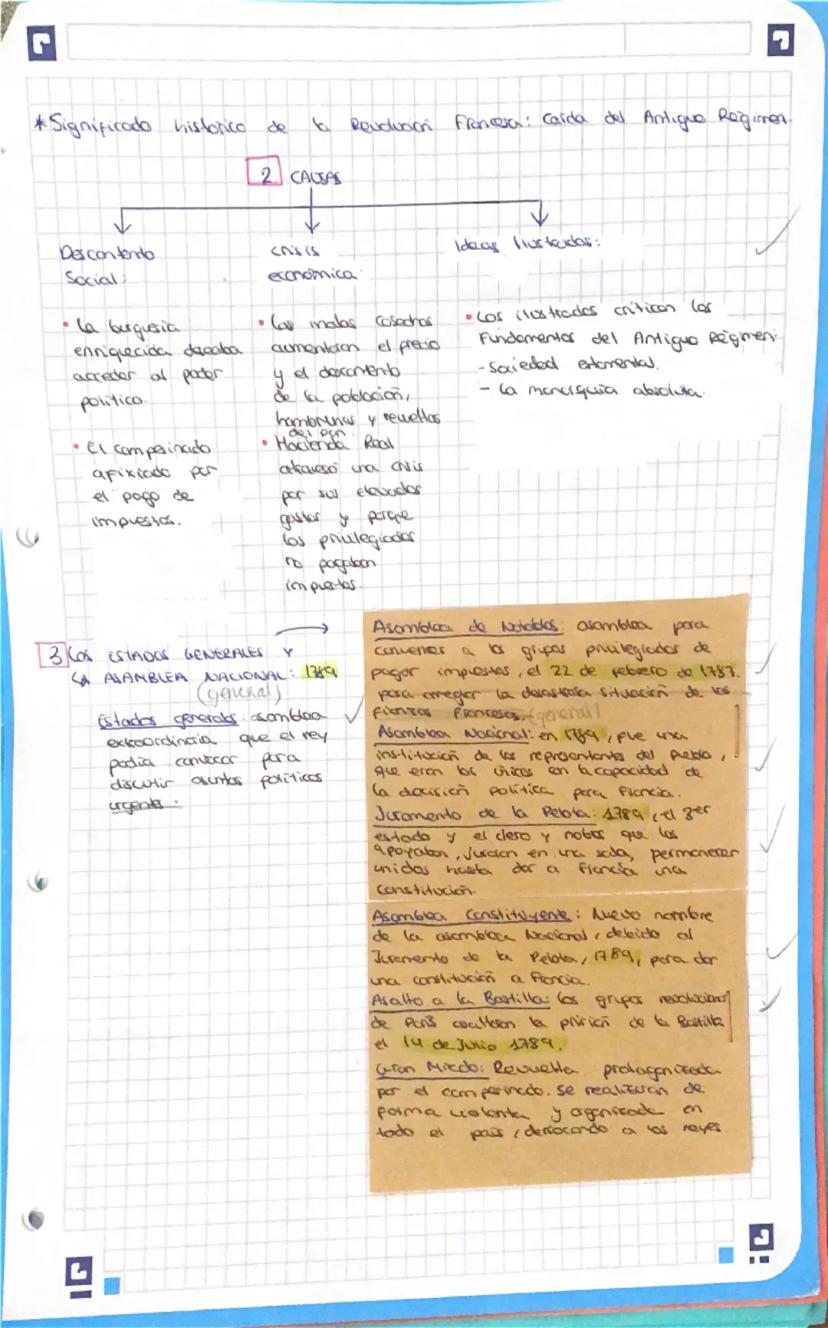 *Significado historico de la Revolución Francesa: Caida del Antiguo Régimen.
2 CAUSAS
Descontento
Social:
• La burguesia
enriquecida deseaba
acceder al poder
político.
• El campesinado
afixiado por
el pago de
impuestos.
crisis
económica:
• Las malas cosechas
aumentaron el precio
y el descontento
de la población,
hambrunas y revueltas
del pan.
• Hacienda Real
atravesó una crisis
por sus elevados
gastos y porque
los privilegiados
no pagaban
impuestos.
Ideas Ilustradas:
• Los ilustrados critican los
Fundamentos del Antiguo Régimen:
- Sociedad estamental.
- La monarquía absoluta.
3 LOS ESTADOS GENERALES Y
LA ASAMBLEA NACIONAL: 1789
(general)
Estados generales: asamblea
extraordinaria que el rey
podia convocar para
discutir asuntos políticos
urgentes.
Asamblea de Notables: asamblea para
convencer a los grupos privilegiados de
pagar impuestos, el 22 de febrero de 1787.
para arreglar la desastrosa situación de las
finanzas francesas. (general)
Asamblea Nacional: en 1789, fue una
institución de los representantes del pueblo,
que eran los únicos en la capacidad de
la decisión política para Francia.
Juramento de la Pelota: 1789, el 3er
estado y el clero y nobles que los
apoyaban, juraron en una sala, permanecer
unidos hasta dar a Francia una
constitución.
Asamblea Constituyente: Nuevo nombre
de la asamblea Nacional, debido al
Juramento de la Pelota, 1789, para dar
una constitución a Francia.
Asalto a la Bastilla: los grupos revolucionar
de París asaltaron la prisión de la Bastilla
el 14 de Julio 1789.
Gran Miedo: Revuelta protagonizada
por el campesinado. Se realizaron de
forma violenta y organizada en
todo el país, derrocando a los reyes